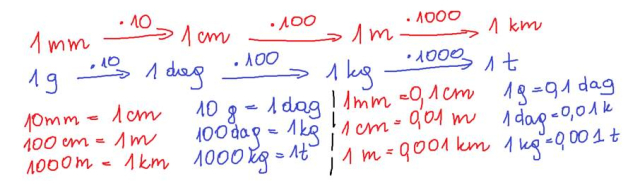 1 mm ·10 1 cm ·100 1 m ·1000 1 km
1 g ·10 1 dag ·100 1 kg ·1000 1 t
10 mm = 1 cm
100 cm = 1 m
1000 m = 1 km
10 g = 1 dag
100 dag = 1 kg
1000 kg = 1t
1 mm = 0,1 cm
1 cm = 0,01 m
1 m = 0,001 km
1 g = 0,1 dag
1 dag = 0,01 k
1 kg = 0,001 t